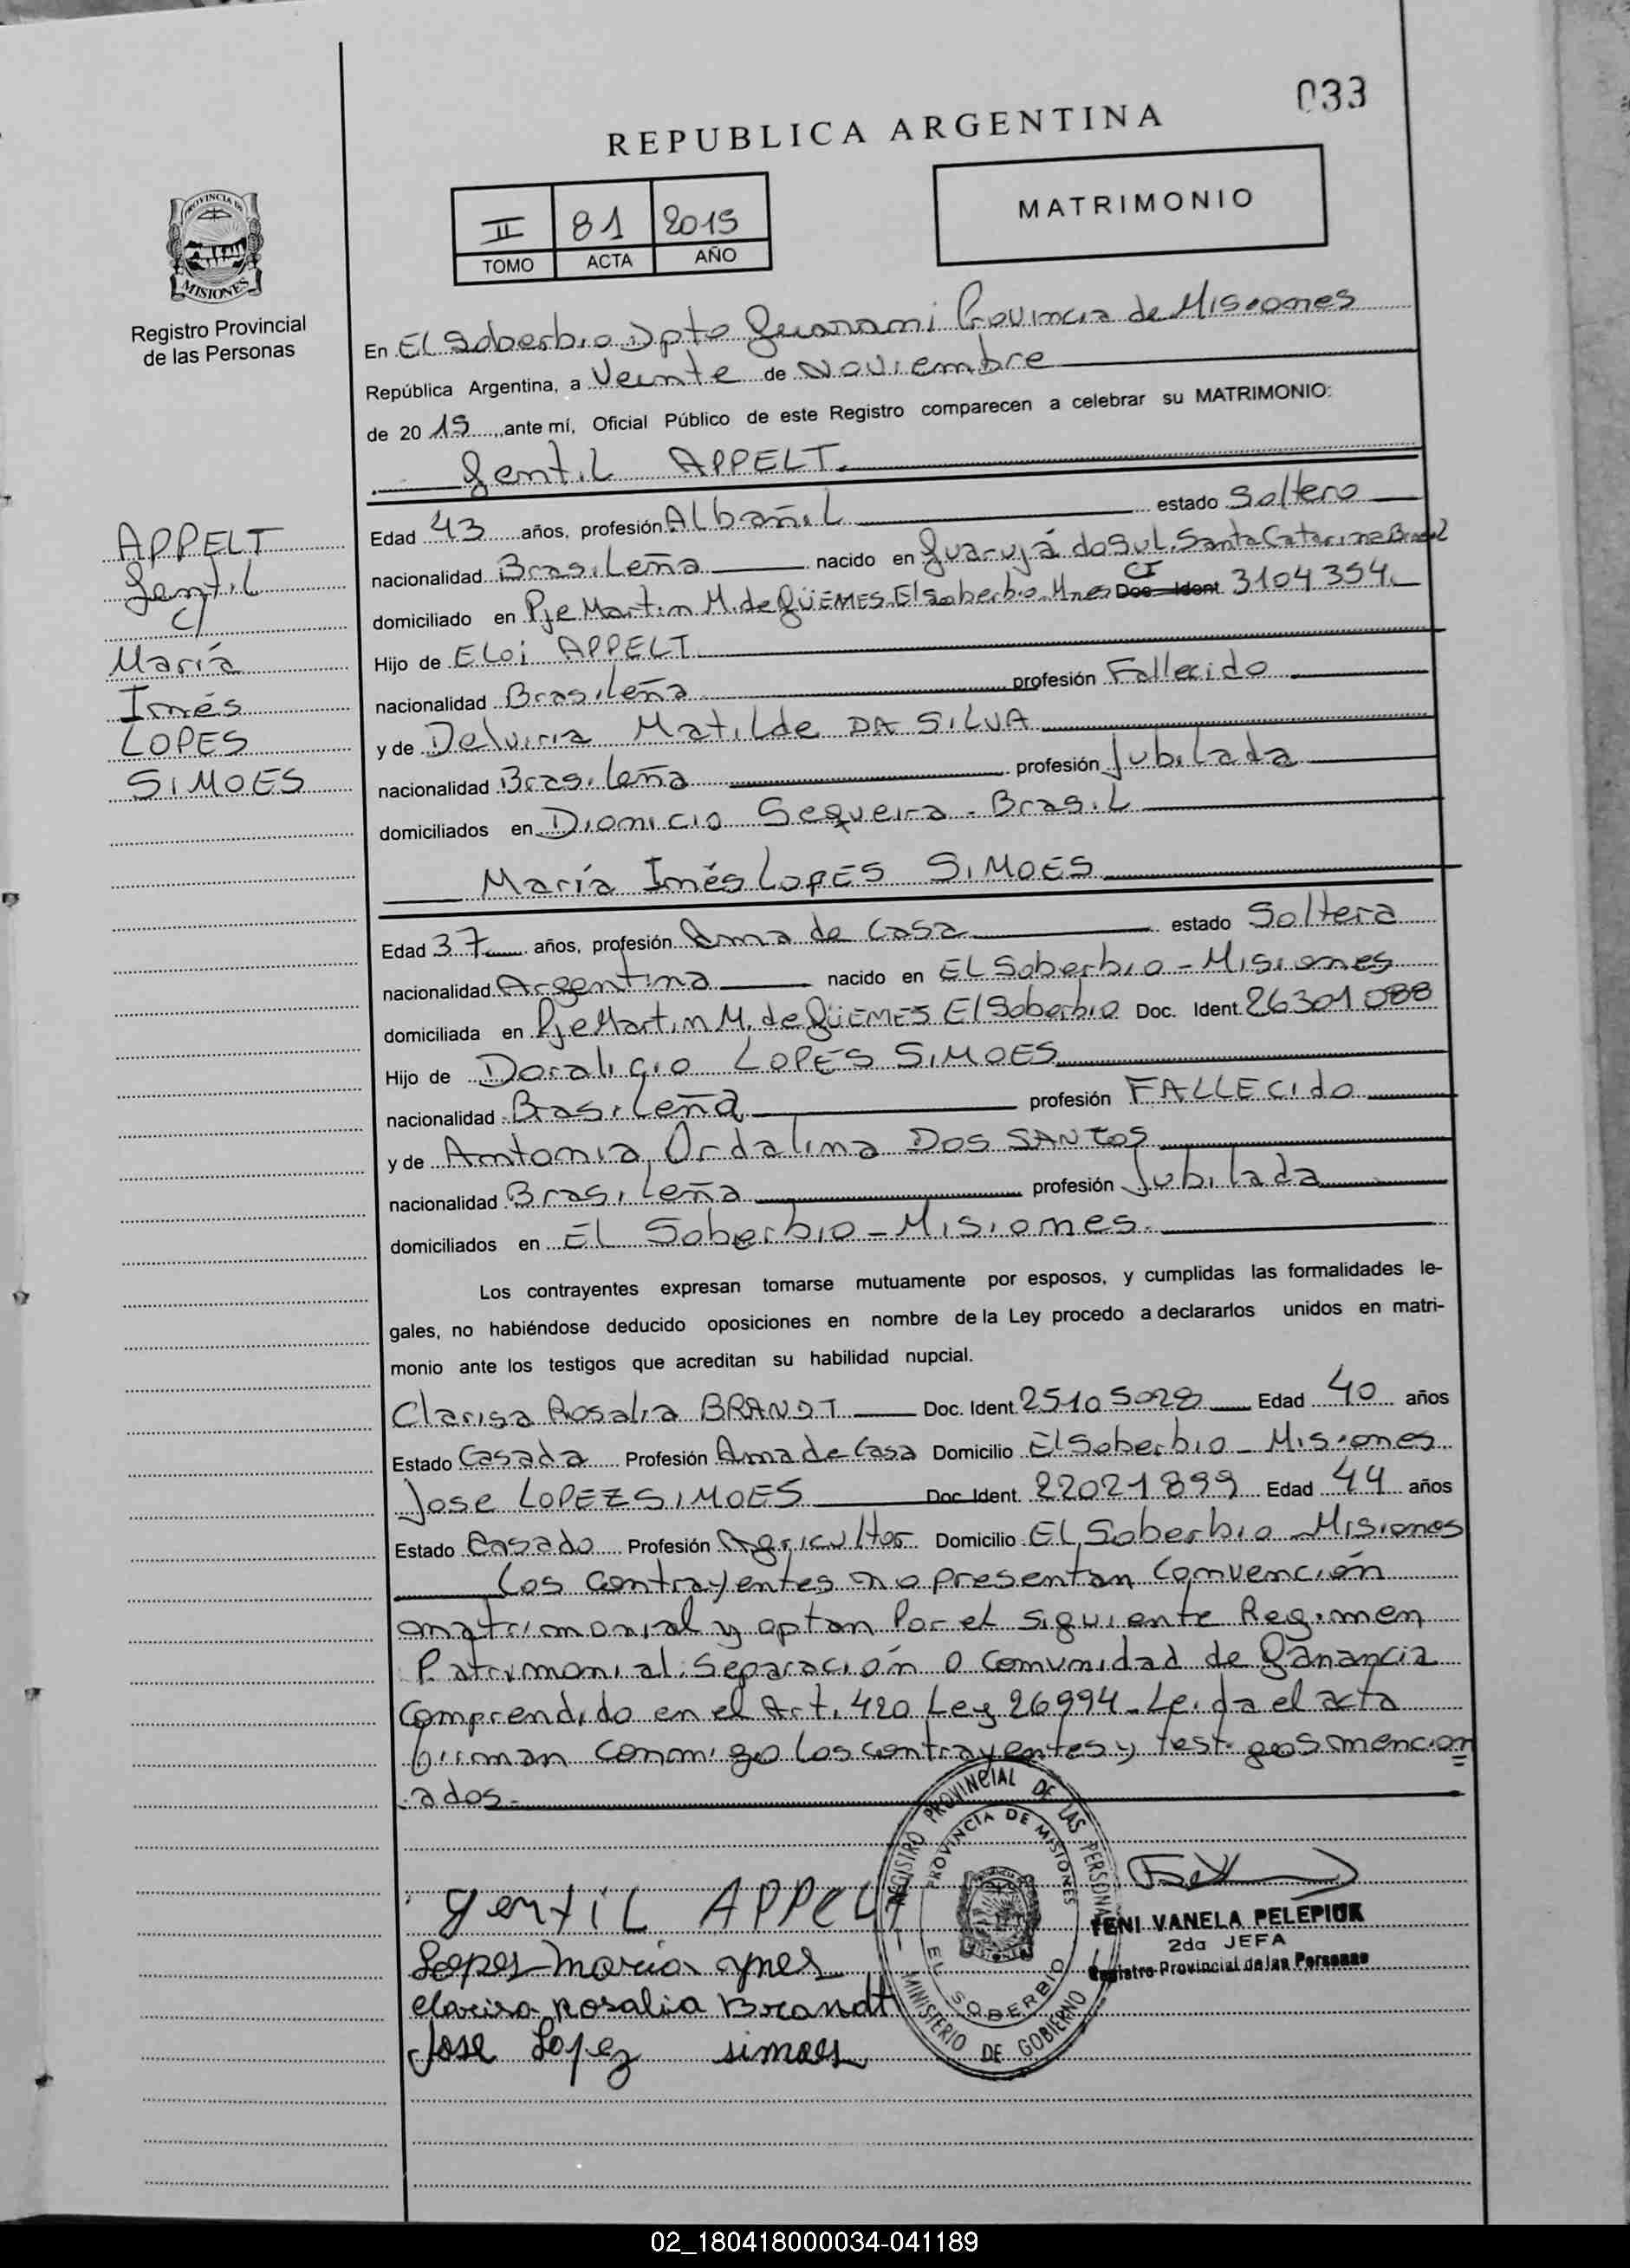 033
REPUBLICA ARGENTINA
MATRIMONIO
II 81 2015
TOMO ACTA AÑO
PROVINCIA DE
MISIONES
Registro Provincial
de las Personas
En El Soberbio Dpto Guarani Provincia de Misiones
República Argentina, a Veinte de Noviembre
de 2015, ante mí, Oficial Público de este Registro comparecen a celebrar su MATRIMONIO:
Gentil APPELT.
Edad 43 años, profesión Albañil estado Soltero
nacionalidad Brasileña nacido en Guarujá do Sul. Santa Catarina Brasil
domiciliado en Pje Martin M. de GÜEMES. El Soberbio. Mnes Doc. Ident CI 3104354.
Hijo de Eloi APPELT
nacionalidad Brasileña profesión Fallecido
y de Delviria Matilde DA SILVA
nacionalidad Brasileña profesión Jubilada
domiciliados en Dionicio Sequeira - Brasil
María Inés LOPES SIMOES
Edad 37 años, profesión Ama de Casa estado Soltera
nacionalidad Argentina nacido en El Soberbio - Misiones
domiciliada en Pje Martin M. de GÜEMES El Soberbio Doc. Ident. 26301088
Hijo de Doraligio LOPES SIMOES
nacionalidad Brasileña profesión FALLECIdo
y de Antonia Ordalina DOS SANTOS
nacionalidad Brasileña profesión Jubilada
domiciliados en El Soberbio - Misiones.
Los contrayentes expresan tomarse mutuamente por esposos, y cumplidas las formalidades le-
gales, no habiéndose deducido oposiciones en nombre de la Ley procedo a declararlos unidos en matri-
monio ante los testigos que acreditan su habilidad nupcial.
Clarisa Rosalia BRANDT Doc. Ident. 25105028 Edad 40 años
Estado Casada Profesión Ama de Casa Domicilio El Soberbio - Misiones
Jose LOPEZ SIMOES Doc. Ident. 22021899 Edad 44 años
Estado Casado Profesión Agricultor Domicilio El Soberbio - Misiones
Los Contrayentes no presentan Convención
matrimonial y optan Por el siguiente Regimen
Patrimonial: Separación o Comunidad de Ganancia
Comprendido en el Art. 420 Ley 26994 - Leida el acta
firman conmigo los contrayentes y testigos mencion
ados.
APPELT
Gentil
C/
María
Inés
LOPES
SIMOES
gentiL APPELt
Lopes Maria ynes
Clarisa Rosalia Brandt
Jose Lopez simoes
REGISTRO PROVINCIAL DE LAS PERSONAS
PROVINCIA DE MISIONES
EL SOBERBIO
MINISTERIO DE GOBIERNO
YENI VANELA PELEPIUK
2da JEFA
Registro Provincial de las Personas
02_180418000034-041189